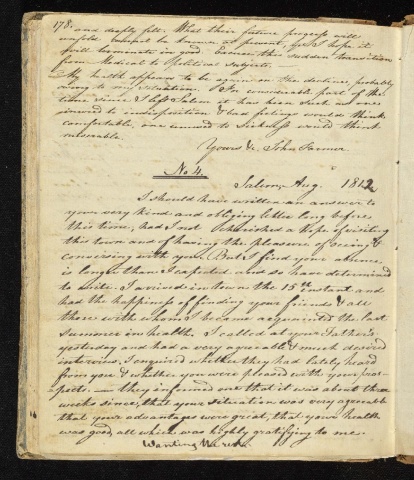 178.
and deeply felt. What their future progress will
unfold cannot be known at present, yet I hope it
will terminate in good. Excuse this sudden transition
from Medical to Political subjects.
My health appears to be again on the decline, probably
owing to my situation. For considerable part of the
time since I left Salem it has been such as one
inured to indisposition & bad feelings would think
comfortable, one unused to Sickness would think
miserable.
Yours &c. John Farmer
No 4.
Salem, Aug. 1812
I should have written an answer to
your very kind and obliging letter long before
this time, had I not cherished a hope of visiting
this town and of having the pleasure of seeing &
conversing with you. But I find your absence
is longer than I expected and so have determined
to write. I arrived in town the 15th instant and
had the happiness of finding your friends & all
those with whom I became acquainted the last
summer in health. I called at your Father's
yesterday and had a very agreeable & much desired
interview. I enquired whether they had lately heard
from you & whether you were pleased with your pros-
pects. — they informed me that it was about three
weeks since, that your situation was very agreeable
that your advantages were great, that your health
was good, all which was highly gratifying to me.
Wanting the rest.